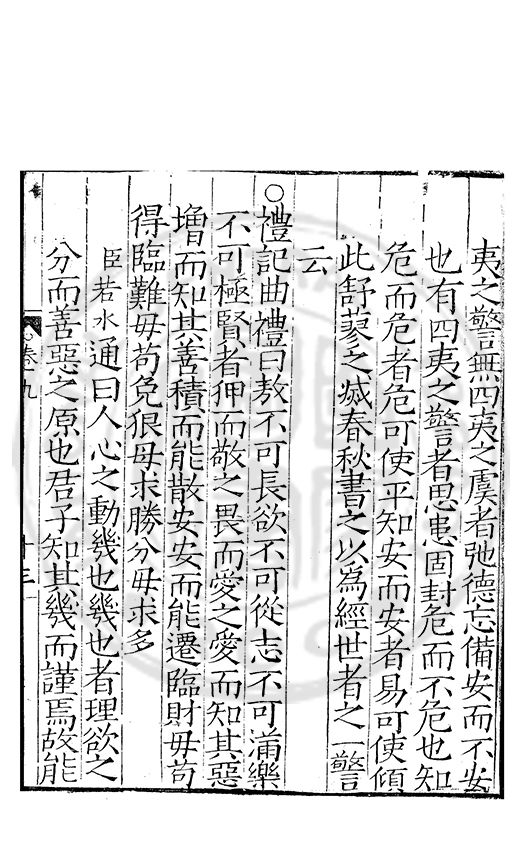 夷之警無四夷之虞者弛德忘備安而不安
也有四夷之警者思患固封危而不危也知
危而危者危可使平知安而安者易可使傾
此舒蓼之烕春秋書之以為經世者之一警
云
○禮記曲禮曰敖不可長欲不可從志不可滿樂
不可極賢者狎而敬之畏而愛之愛而知其惡
憎而知其善積而能散安安而能遷臨財毋茍
得臨難毋茍免狠毋求勝分毋求多
臣若水通曰人心之動幾也幾也者理欲之
分而善惡之原也君子知其幾而謹焉故能
卷九
十三